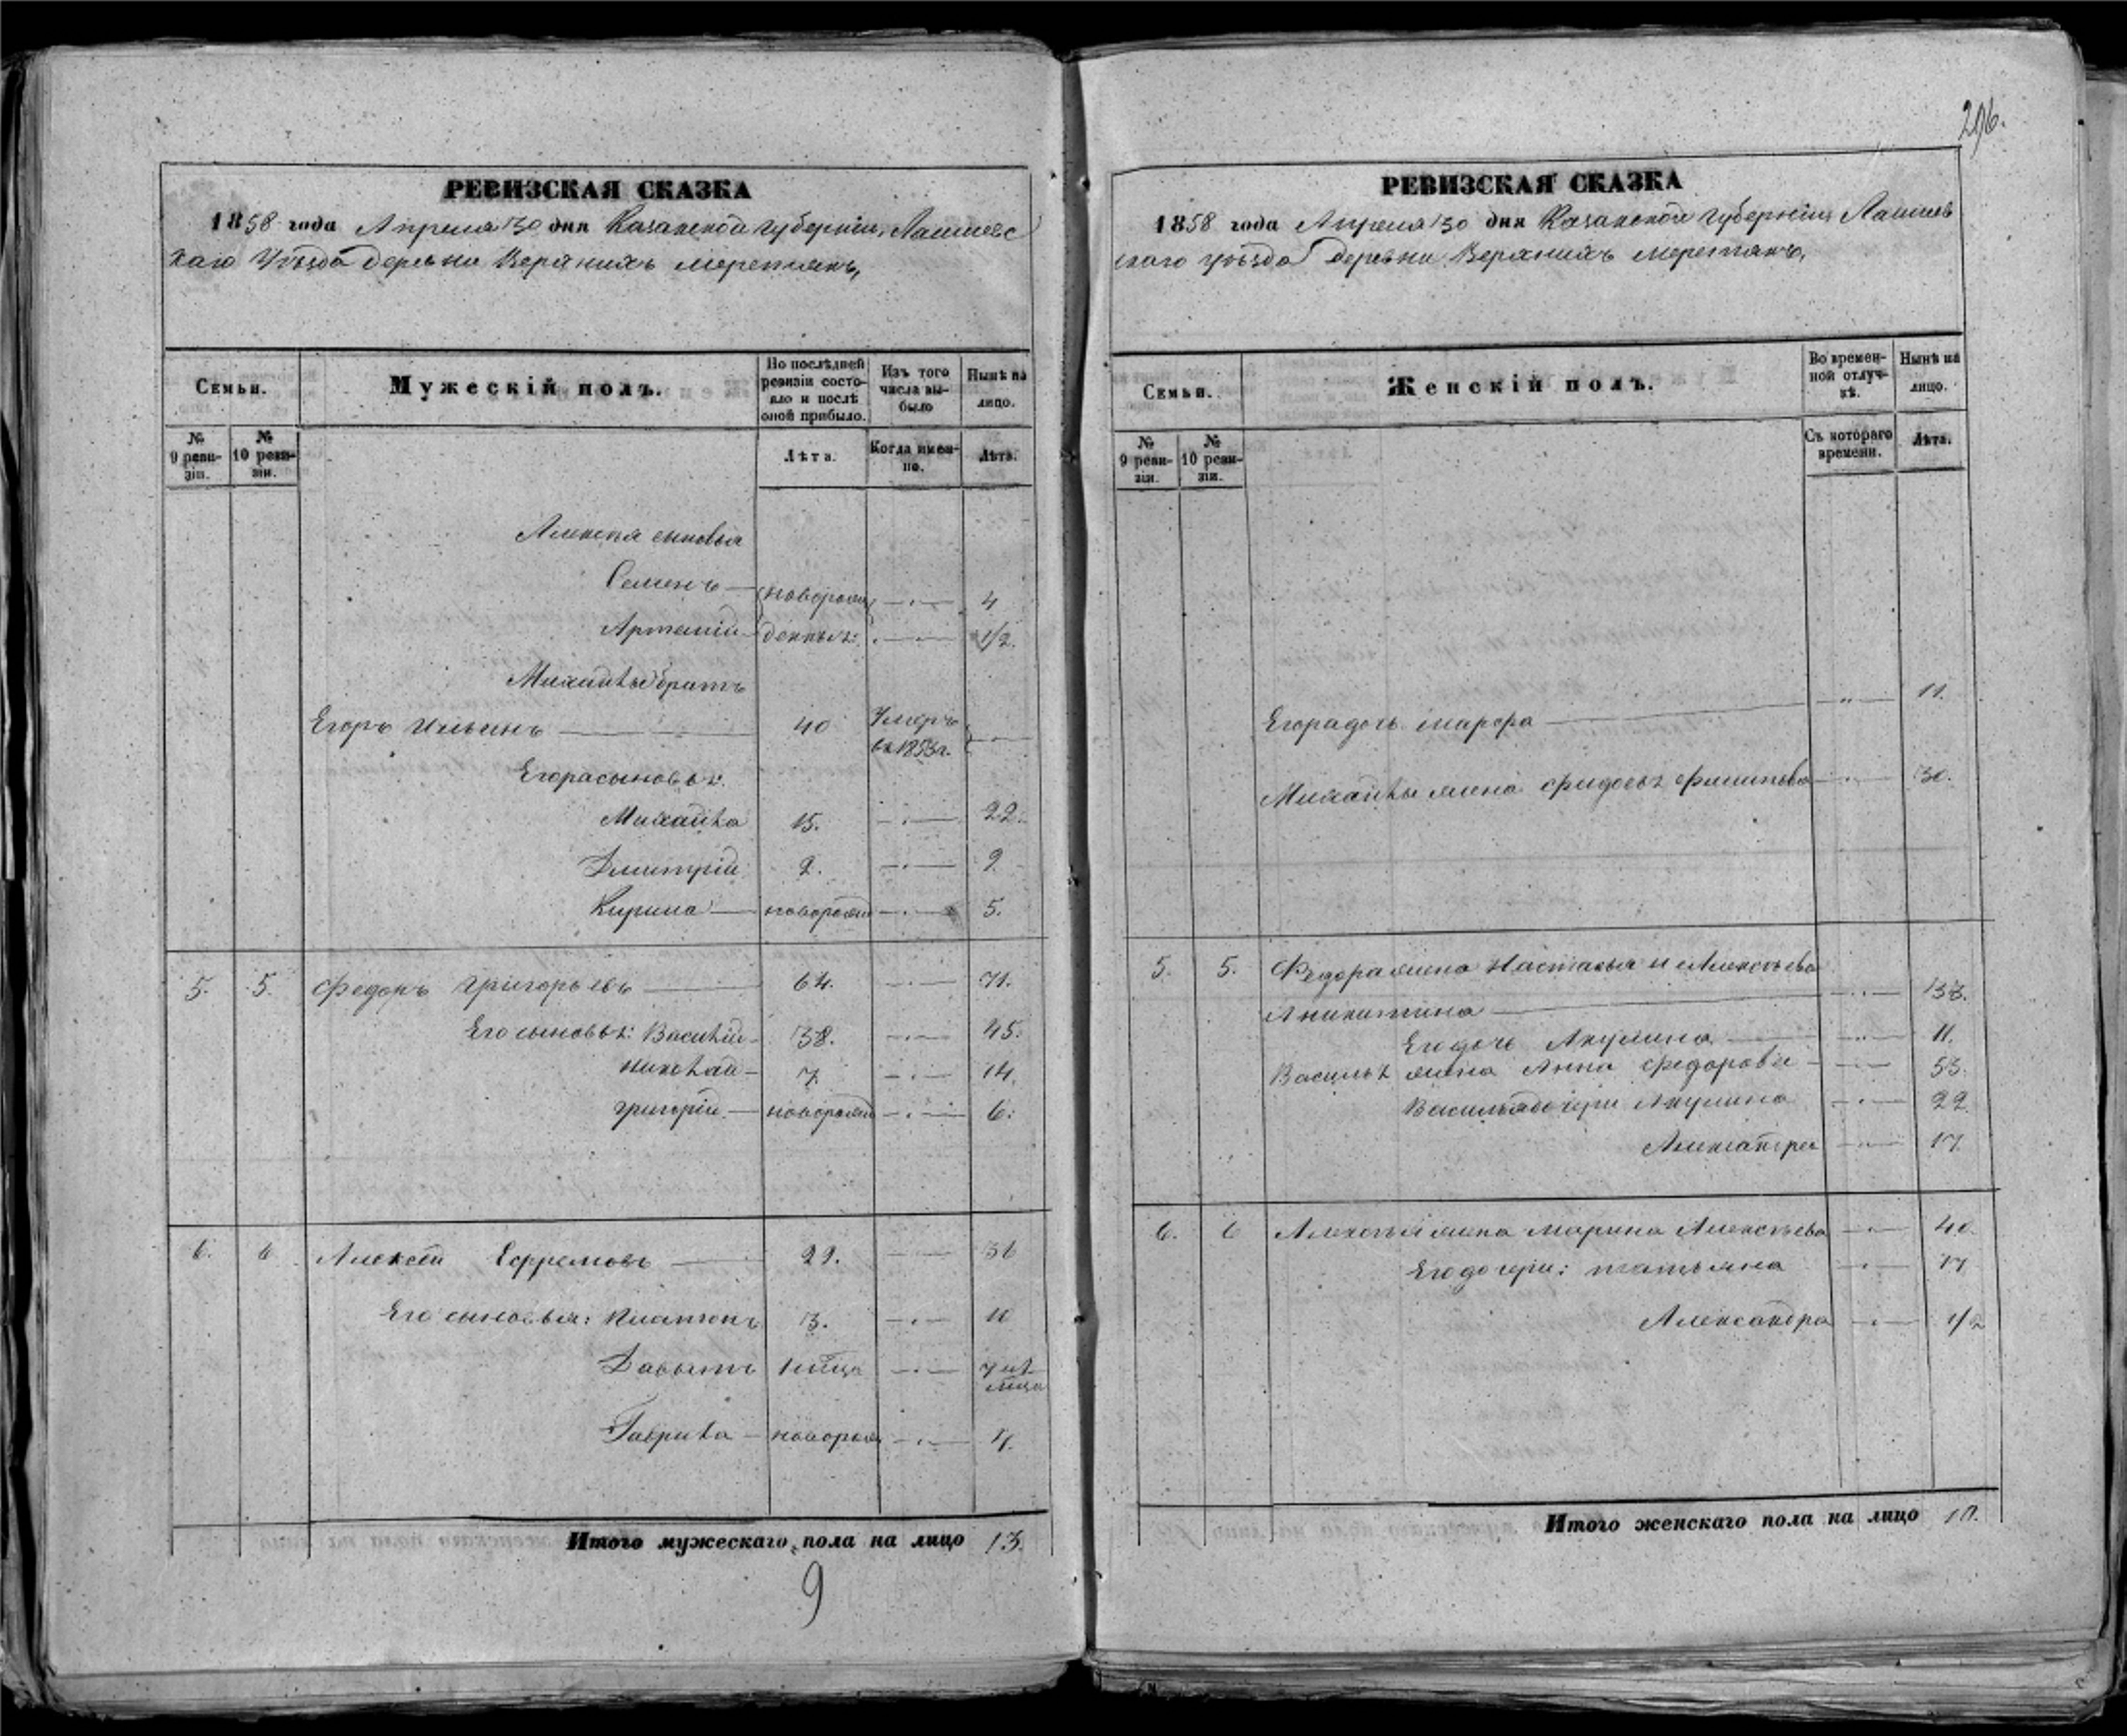 296.
РЕВИЗСКАЯ СКАЗКА
1858 года Апреля 30 дня Казанской губерніи, Лаишевс
каго Уѣзда деревни Верхнихъ меретякъ,
Семьи.
Мужескій полъ.
По послѣдней ревизіи состояло и послѣ оной прибыло.
Изъ того числа выбыло
Нынѣ на лицо.
№ 9 ревизіи.
№ 10 ревизіи.
Лѣта.
Когда именно.
Лѣта.
Алексѣя сыновья
Семенъ — новорож — 4
Артемій — денные — 1/2.
Михайлы братъ
Егоръ Ильинъ — 40 Умеръ
въ 1853 г.
Егора сыновья:
Михайла 15. — 22.
Дмитрій 2. — 9
Кирила — новорожд — 5.
5. 5. Федоръ Григорьевъ — 64. — 71.
Его сыновья: Василій — 38. — 45.
Николай — 7 — 14.
Григорій — новорожд — 6.
6. 6 Алексѣй Ефремовъ — 29. — 36
Его сыновья: Платонъ 3. — 10
Давыдъ — 7 лѣ
Гаврила — новорож — 4.
Итого мужескаго пола на лицо 13.
9
РЕВИЗСКАЯ СКАЗКА
1858 года Апреля 30 дня Казанской губерніи Лаишев
скаго уѣзда деревни Верхнихъ меретякъ,
Семьи.
Женскій полъ.
Во временной отлучкѣ.
Нынѣ на лицо.
№ 9 ревизіи.
№ 10 ревизіи.
Съ котораго времени.
Лѣта.
Егора дочь Марфа — 11.
Михайлы жена — 30.
5. 5. Федора жена Настасья Алексѣева
Аникитина —
Его дочь Акулина — 11.
Василья жена Анна Федорова — 53.
Василья дочери Акулина — 22
Александра — 17
6. 6 Алексѣя жена Марина Алексѣева — 40.
Его дочери: Татьяна — 17
Александра — 1/2
Итого женскаго пола на лицо 10.